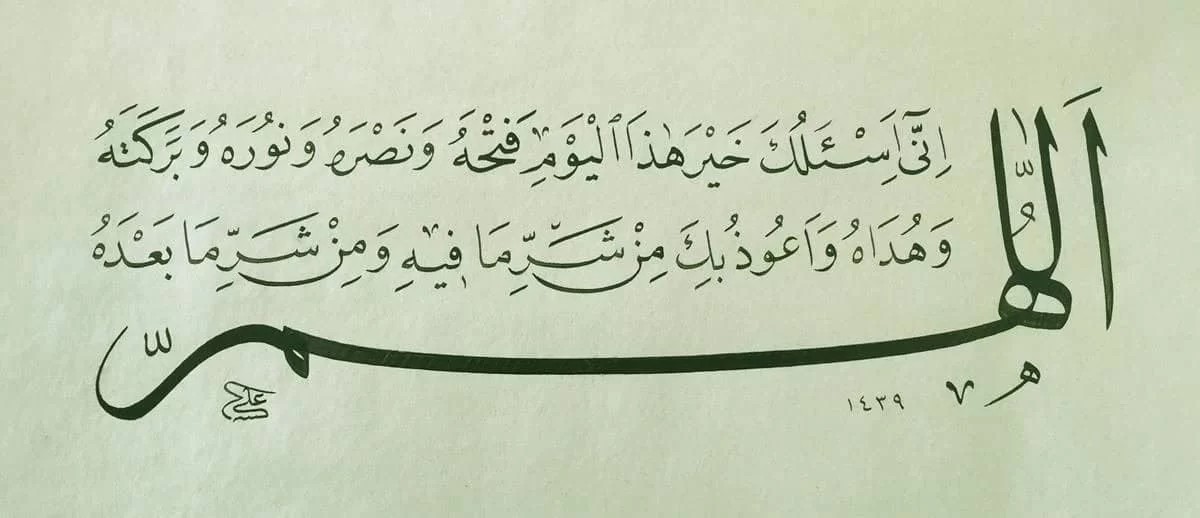 اَللّٰهُمَّ
اِنِّٓى اَسْـَٔلُكَ خَيْرَ هٰذَا الْيَوْمِ فَتْحَهُ وَنَصْرَهُ وَنُورَهُ وَبَرَكَتَهُ
وَهُدَاهُ وَاَعُوذُ بِكَ مِنْ شَرِّ مَا فِيهِ وَمِنْ شَرِّ مَا بَعْدَهُ
١٤٣٩